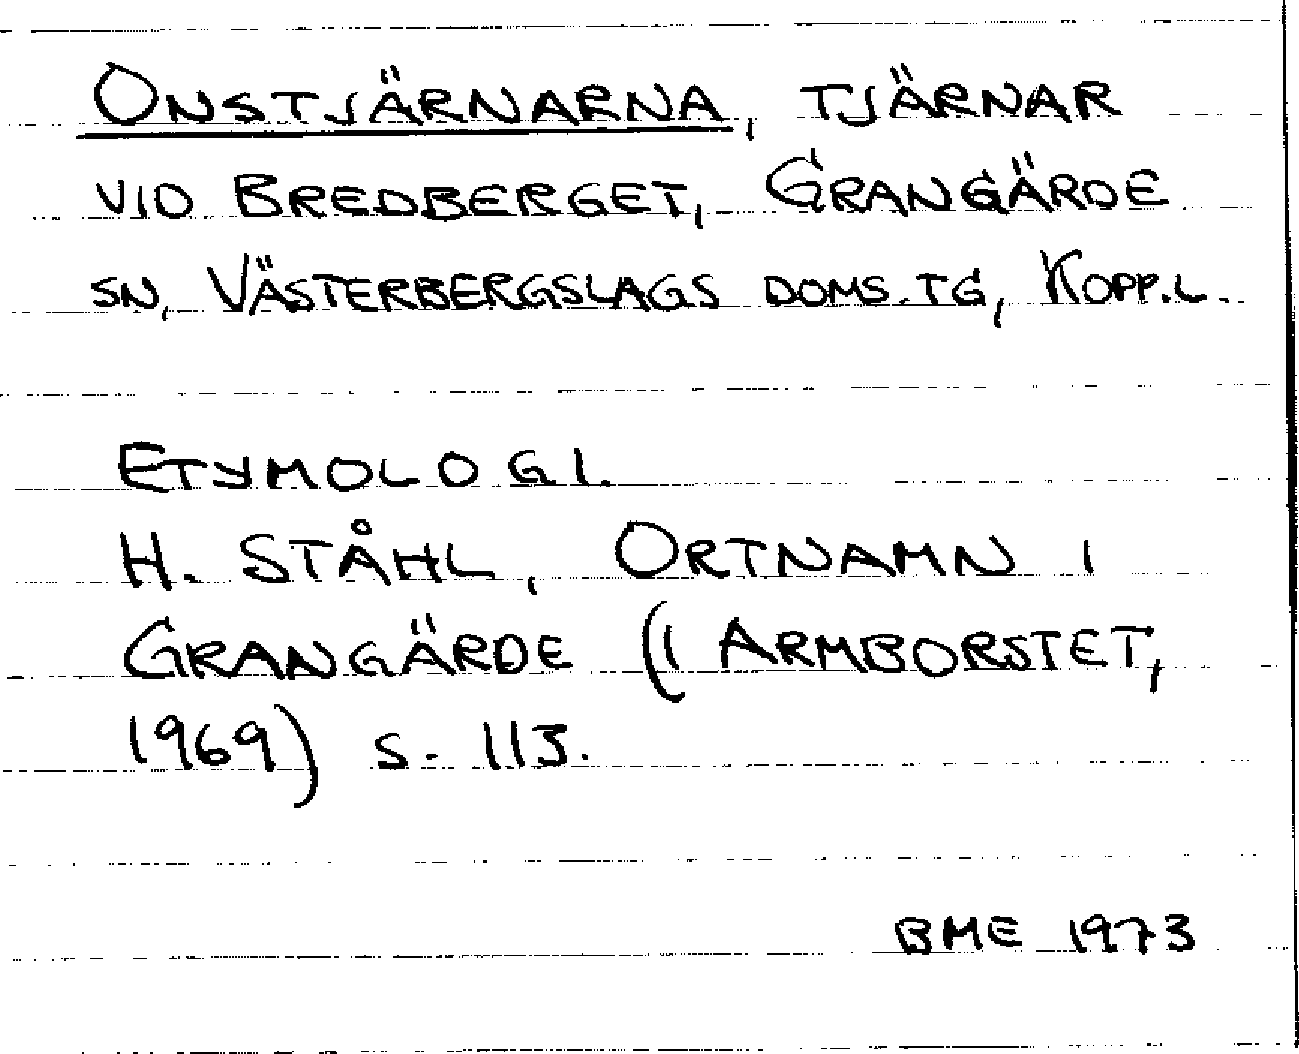 ONSTJÄRNARNA, TJÄRNAR
VID BREDBERGET, GRANGÄRDE
SN, VÄSTERBERGSLAGS DOMS.TG, KOPP.L.
ETYMOLOGI.
H. STÅHL, ORTNAMN I
GRANGÄRDE (I ARMBORSTET,
1969) S. 113.
BME 1973